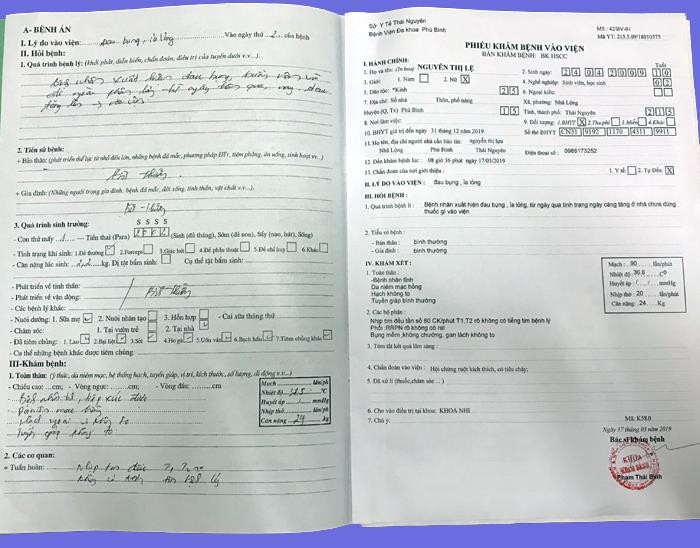 A- BỆNH ÁN
I. Lý do vào viện: Đau bụng, ỉa lỏng Vào ngày thứ 2 của bệnh
II. Hỏi bệnh:
1. Quá trình bệnh lý: (khởi phát, diễn biến, chẩn đoán, điều trị của tuyến dưới v.v...).
2. Tiền sử bệnh:
+ Bản thân: (phát triển thể lực từ nhỏ đến lớn, những bệnh đã mắc, phương pháp ĐTr, tiêm phòng, ăn uống, sinh hoạt vv...)
Bt thường
+ Gia đình: (Những người trong gia đình: bệnh đã mắc, đời sống, tinh thần, vật chất v.v...).
Bt thường
3. Quá trình sinh trưởng: S S S S
- Con thứ mấy 1 Tiền thai (Para) (Sinh (đủ tháng), Sớm (đẻ non), Sẩy (nạo, hút), Sống)
- Tình trạng khi sinh: 1.Đẻ thường 2.Forceps 3.Giác hút 4.Đẻ phẫu thuật 5.Đẻ chỉ huy 6.Khác
- Cân nặng lúc sinh: kg. Dị tật bẩm sinh: Cụ thể tật bẩm sinh:
- Phát triển về tinh thần:
- Phát triển về vận động: Bt thường
- Các bệnh lý khác:
- Nuôi dưỡng: 1. Sữa mẹ 2. Nuôi nhân tạo 3. Hỗn hợp - Cai sữa tháng thứ
- Chăm sóc: 1. Tại vườn trẻ 2. Tại nhà
- Đã tiêm chủng: 1. Lao 2.Bại liệt 3.Sởi 4.Ho gà 5.Uốn ván 6.Bạch hầu 7.Tiêm chủng khác
- Cụ thể những bệnh khác được tiêm chủng:
III-Khám bệnh:
1. Toàn thân: (ý thức, da niêm mạc, hệ thống hạch, tuyến giáp, vị trí, kích thước, số lượng, di động v.v...)
- Chiều cao: ...cm; - Vòng ngực: ...cm; - Vòng đầu: ...cm
Mạch lần/ph
Nhiệt độ °C
Huyết áp / mmHg
Nhịp thở lần/ph
Cân nặng 24 kg
2. Các cơ quan:
+ Tuần hoàn:
Sở Y Tế Thái Nguyên
Bệnh Viện Đa khoa Phú Bình
MS : 42/BV-01
Mã YT: 215.5.09/18010575
PHIẾU KHÁM BỆNH VÀO VIỆN
BÀN KHÁM BỆNH: BK HSCC
I. HÀNH CHÍNH:
Tuổi
1. Họ và tên: (In hoa) NGUYỄN THỊ LỆ 2. Sinh ngày: 2 4 0 4 2 0 0 9 1 0
3. Giới: 1. Nam 2. Nữ X 4. Nghề nghiệp: Sinh viên, học sinh 0 2
5. Dân tộc: *Kinh 2 5 6. Ngoại kiều:
7. Địa chỉ: Số nhà Thôn, phố nàng Xã, phường: Nhã Lộng
Huyện (Q, Tx) Phú Bình 1 5 Tỉnh, thành phố: Thái Nguyên 2 1 5
8. Nơi làm việc: 9. Đối tượng: 1.BHYT X 2.Thu phí 3.Miễn 4.Khác
10. BHYT giá trị đến ngày 31 tháng 12 năm 2019 Số thẻ BHYT CN31 9192 1170 4311 9911
11. Họ tên, địa chỉ người nhà cần báo tin: nguyễn thị lựu
Nhã Lộng Phú Bình Thái Nguyên Điện thoại số : 0986173252
12. Đến khám bệnh lúc : 08 giờ 36 phút ngày 17/03/2019
13. Chẩn đoán của nơi giới thiệu : 1. Y tế: 2. Tự Đến: X
II. LÝ DO VÀO VIỆN : đau bụng , ỉa lỏng
III. HỎI BỆNH :
1. Quá trình bệnh lí : Bệnh nhân xuất hiện đau bụng , ỉa lỏng, từ ngày qua tình trạng ngày càng tăng ở nhà chưa dùng
thuốc gì vào viện
2. Tiểu sử bệnh :
- Bản thân : bình thường
- Gia đình : bình thường
IV. KHÁM XÉT :
1. Toàn thân :
-Bệnh nhân tỉnh
Da niêm mạc hồng
Hạch không to
Tuyến giáp bình thường
Mạch : 90 lần/phút
Nhiệt độ: 36.8 C°
Huyết áp : / mmHg
Nhịp thở : 20 lần/phút
Cân nặng : 24 Kg
2. Các bộ phận :
Nhịp tim đều tần số 80 CK/phút T1,T2 rõ không có tiếng tim bệnh lý
Phổi :RRPN rõ không có ral
Bụng mềm ,không chướng, gan lách không to
3. Tóm tắt kết quả lâm sàng :
4. Chẩn đoán vào viện : Hội chứng ruột kích thích, có tiêu chảy;
5. Đã xử lí (thuốc,chăm sóc ... )
6. Cho vào điều trị tại khoa: KHOA NHI
7. Chú ý:
Mã: K58.0
Ngày 17 tháng 03 năm 2019
Bác sĩ khám bệnh
KHOA
KHÁM BỆNH
Phạm Thái Bình